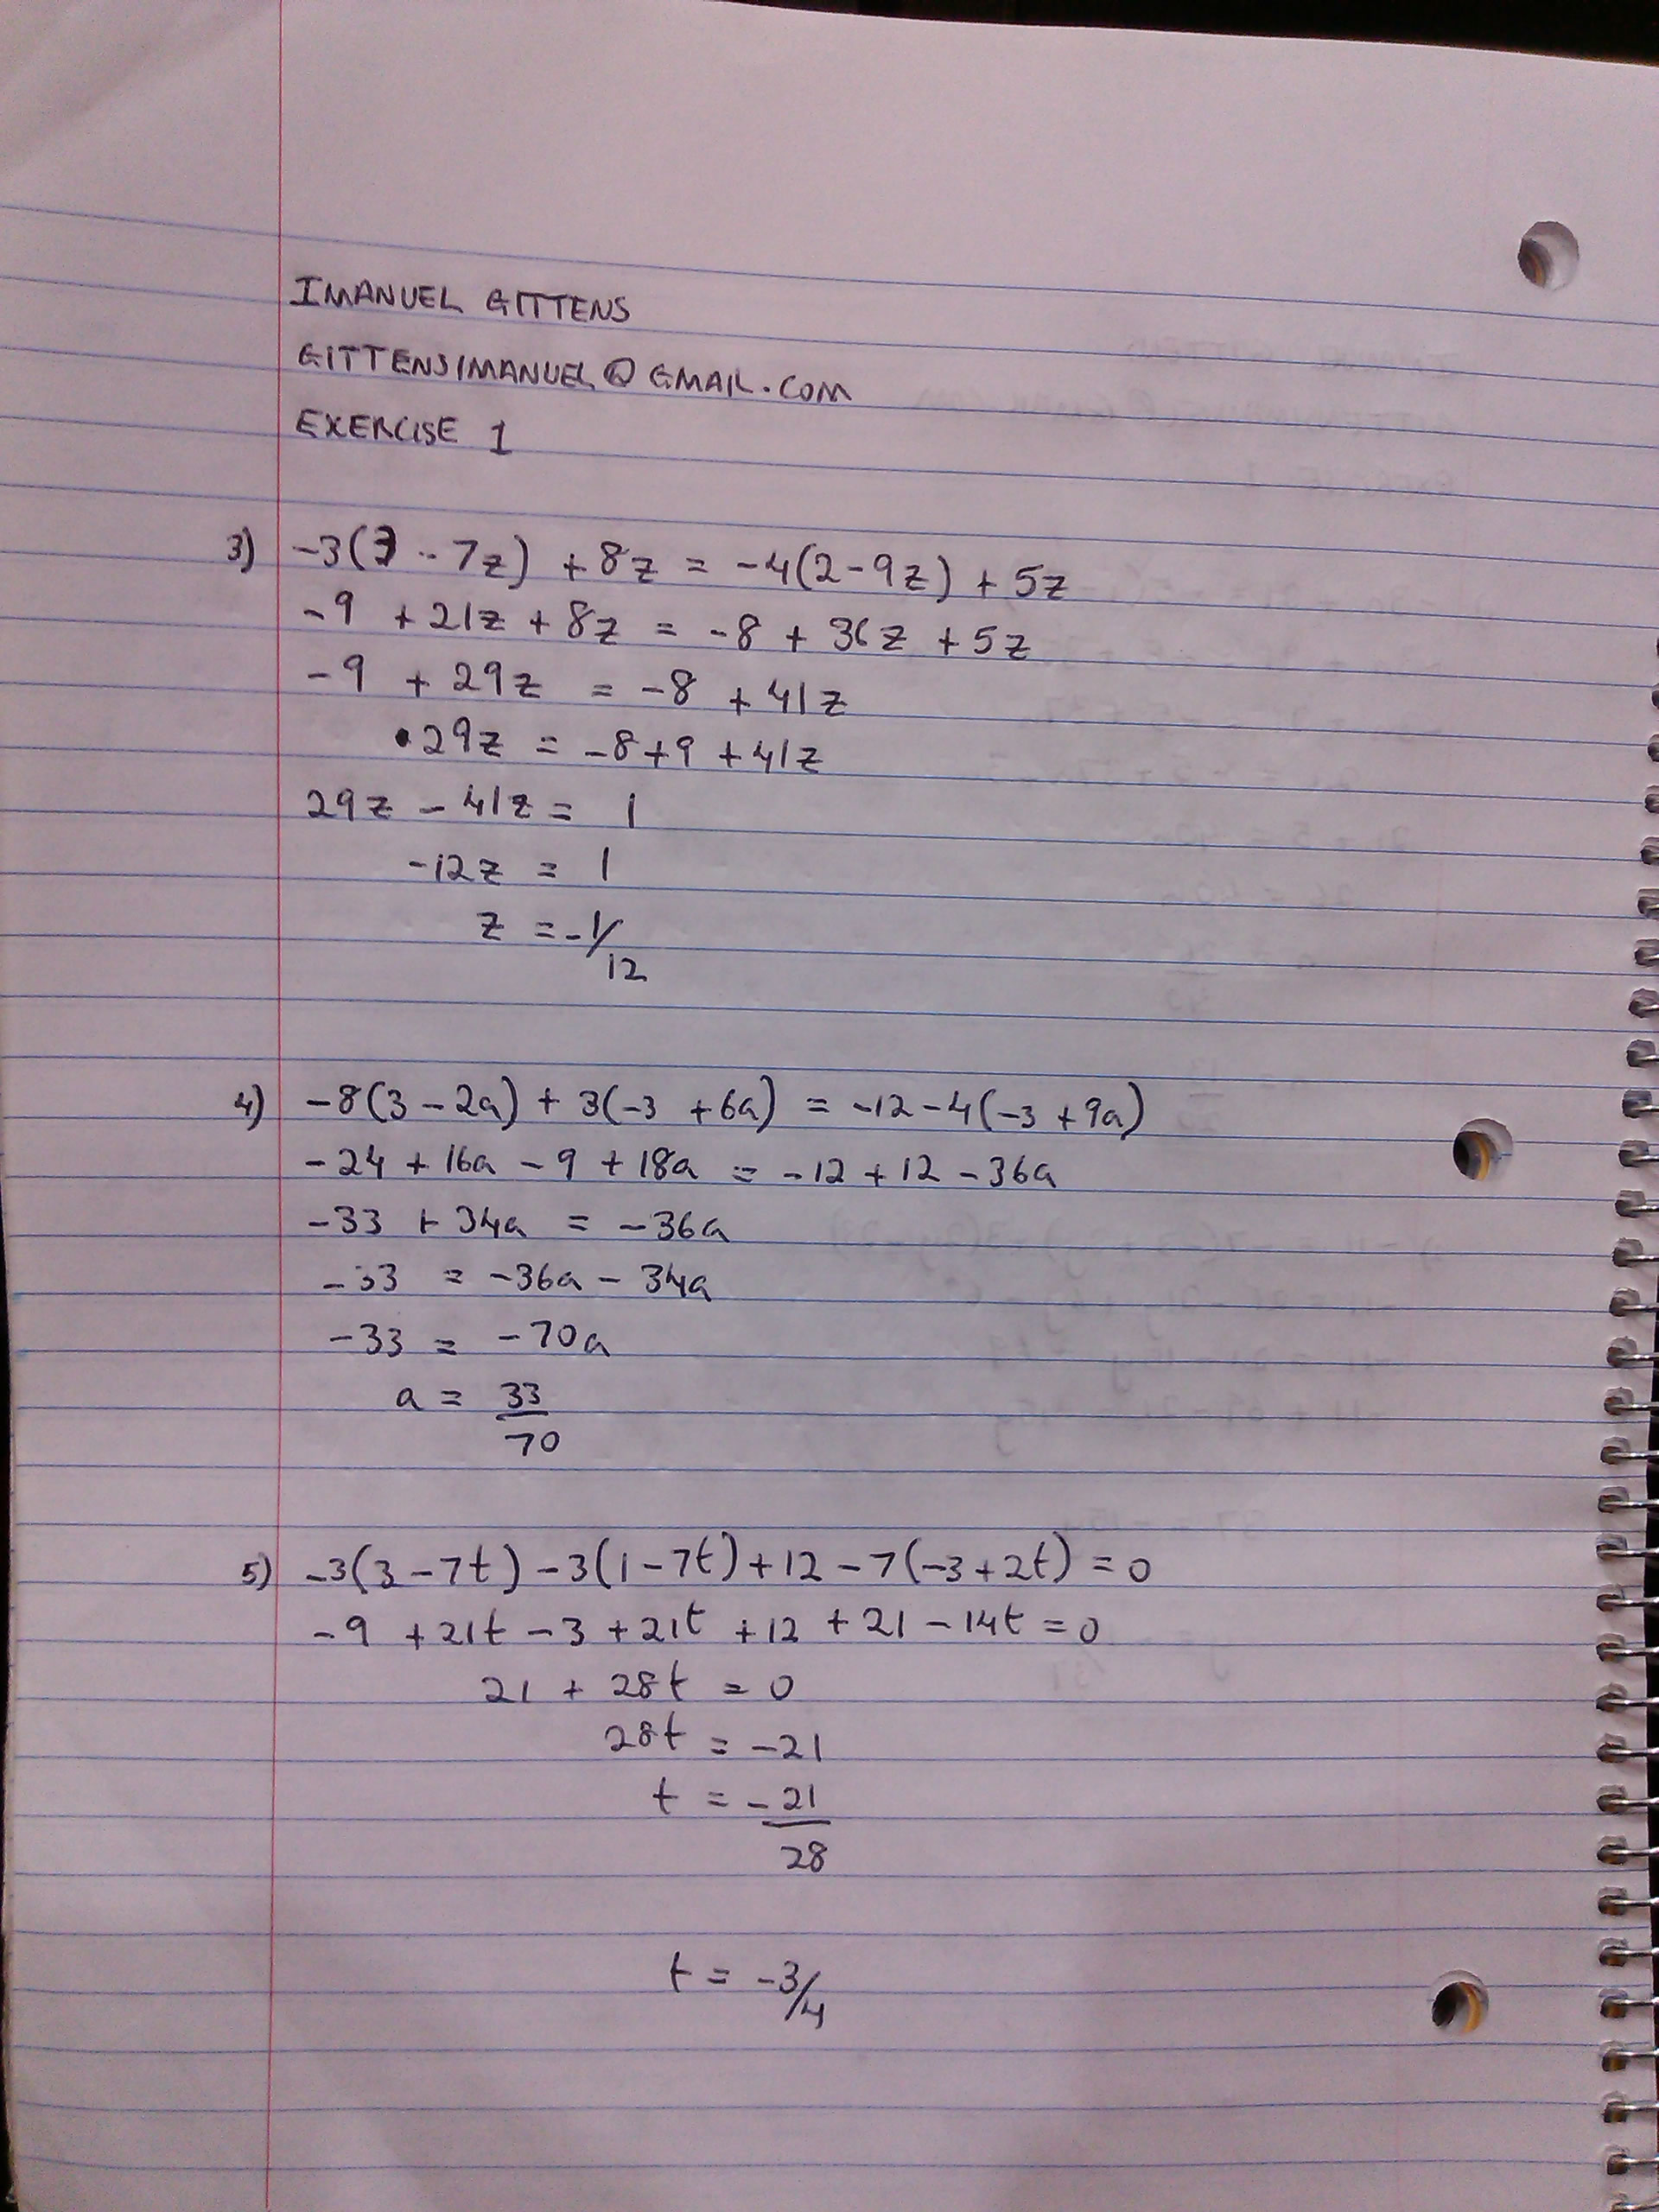 IMANUEL GITTENS
GITTENSIMANUEL@GMAIL.COM
EXERCISE 1
3) -3(3 - 7z) + 8z = -4(2-9z) + 5z
-9 + 21z + 8z = -8 + 36z + 5z
-9 + 29z = -8 + 41z
29z = -8+9 + 41z
29z - 41z = 1
-12z = 1
z = -1/12
4) -8(3 - 2a) + 3(-3 + 6a) = -12 - 4(-3 + 9a)
-24 + 16a - 9 + 18a = -12 + 12 - 36a
-33 + 34a = -36a
-33 = -36a - 34a
-33 = -70a
a = 33
70
5) -3(3 - 7t) - 3(1 - 7t) + 12 - 7(-3 + 2t) = 0
-9 + 21t - 3 + 21t + 12 + 21 - 14t = 0
21 + 28t = 0
28t = -21
t = -21
28
t = -3/4